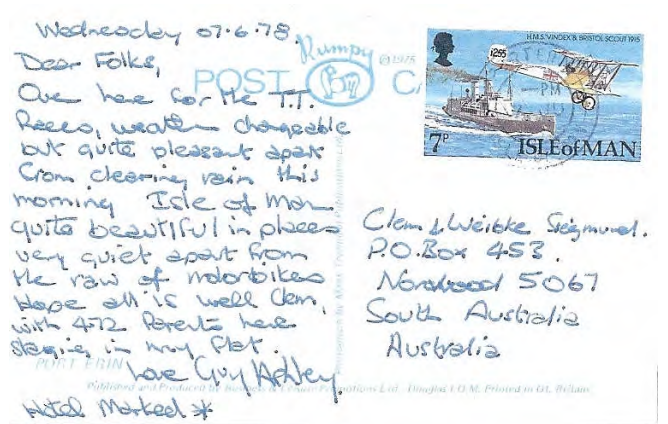 Wednesday 07.6.78.
Dear Folks,
Over here for the T.T.
Races, weather changeable
but quite pleasant apart
from clearing rain this
morning Isle of Man
quite beautiful in places
very quiet apart from
the raw of motorbikes
Hope all is well Clem,
with 472 Parents here
staying in my flat.
Love Guy Ashley.
Hotel Marked *
Rumpy
© 1975
POST CA
PORT ERIN
Published and Produced by Business & Leisure Promotions Ltd - Douglas I.O.M. Printed in Gt. Britain
H.M.S. VINDEX & BRISTOL SCOUT 1915
1255
PM
7P
ISLE of MAN
Clem & Weibke Siegmund.
P.O. Box 453.
Norwood 5067
South Australia
Australia